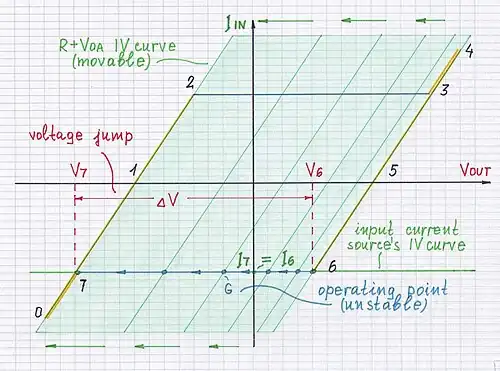 IIN
R+VOA IV curve
(movable)
4
2
3
voltage jump
V7
1
V6
5
VOUT
ΔV
input current
source's IV curve
I7 = I6
6
7
G
operating point
(unstable)
0